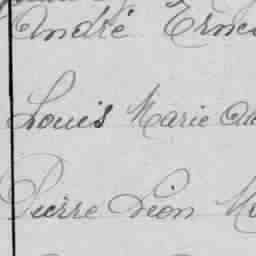 André Ernes
Louis Marie
Pierre Léon